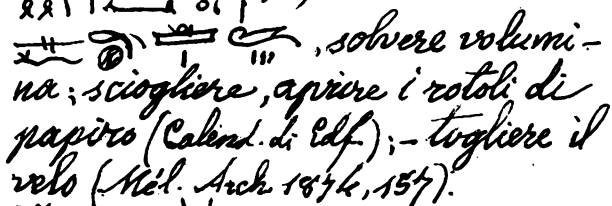 , solvere volumi-
na; sciogliere, aprire i rotoli di
papiro (Calend. di Edf.); - togliere il
velo (Mél. Arch. 1874, 157).